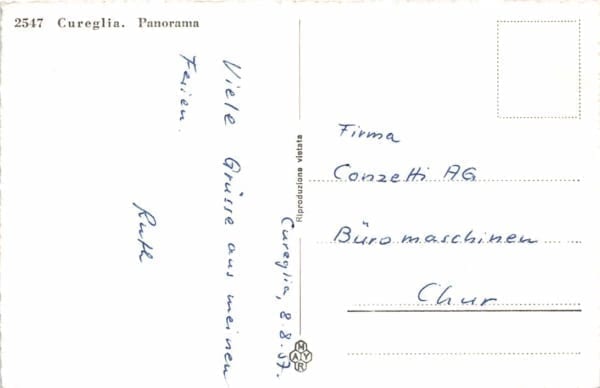 2547 Cureglia. Panorama
Cureglia, 8.8.57.
Viele Grüsse aus meinen
Ferien.
Ruth
Riproduzione vietata
MAYR
Firma
Conzetti AG
Büromaschinen
Chur